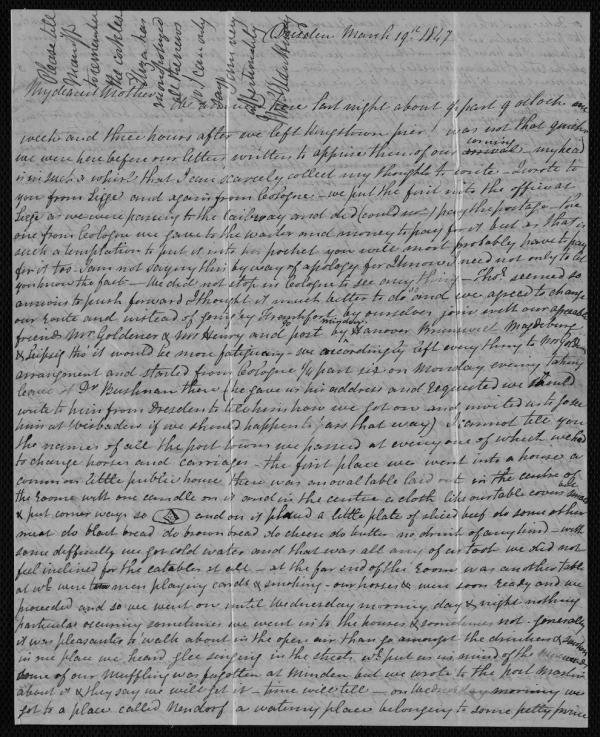 Dresden March 19th 1847
Please tell
to remember
the cobbler
all the news
so I can only
say
affectionately
My dearest Mother
We arrived here last night about ¼ part 9 oClock one
week and three hours after we left Kingstown pier! was not that quick
we were here before our letters written to apprise them of our coming arrival - my head
is in such a whirl that I can scarcely collect my thoughts to write - I wrote to
you from Liege and again from Cologne - we put the first into the office at
Liege as we were passing to the railway and did (could not) pay the postage - the
one from Cologne we gave to the waiter and money to pay for it but as that is
such a temptation to put it into his pocket you will most probably have to pay
for it too I am not saying this by way of apology for I know I need not only to let
you know the fact - We did not stop in Cologne to see any thing - Thos. seemed so
anxious to push forward I thought it much better to do so and we agreed to change
our route and instead of going by Frankford by ourselves join with our agreeable
friends Mr Goldener & Mr Henry and go post by Hanover Brunswick Magdeburg
& Leipsig tho it would be more fatiguing - we accordingly left every thing to Mr Gold
arrangment and started from Cologne ½ part six on Monday evening taking
leave of Dr Bushnan there (he gave us his address and requested we would
write to him from Dresden to tell him how we got on and invited us to join
him at Weisbaden if we should happen to pass that way) I cannot tell you
the names of all the post towns we passed at every one of which we had
to change horses and carriages - the first place we went into a house a
common little public house there was an oval table laid out in the centre of
the room with one candle on it and in the centre a cloth like our table covers small
& put corner ways so and on it placed a little plate of sliced beef do some other
meat do black bread do brown bread do cheese do butter no drink of any kind - with
some difficulty we got cold water and that was all any of us took we did not
feel inclined for the eatables at all - at the far end of the room was another table
at wh. were ten men playing cards & smoking - our horses &c were soon ready and we
proceeded and so we went on until Wednesday morning day & night nothing
particular occuring sometimes we went into the houses & sometimes not - generally
it was pleasanter to walk about in the open air than go amongst the drinkers & smokers
in one place we heard glee singing in the streets wh. put us in mind of the
some of our Muffling was fagotten at Minden but we wrote to the post Master
about it & they say we will get it - time will tell - on Wednesday morning we
got to a place called Nendorf a watering place belonging to some petty prince